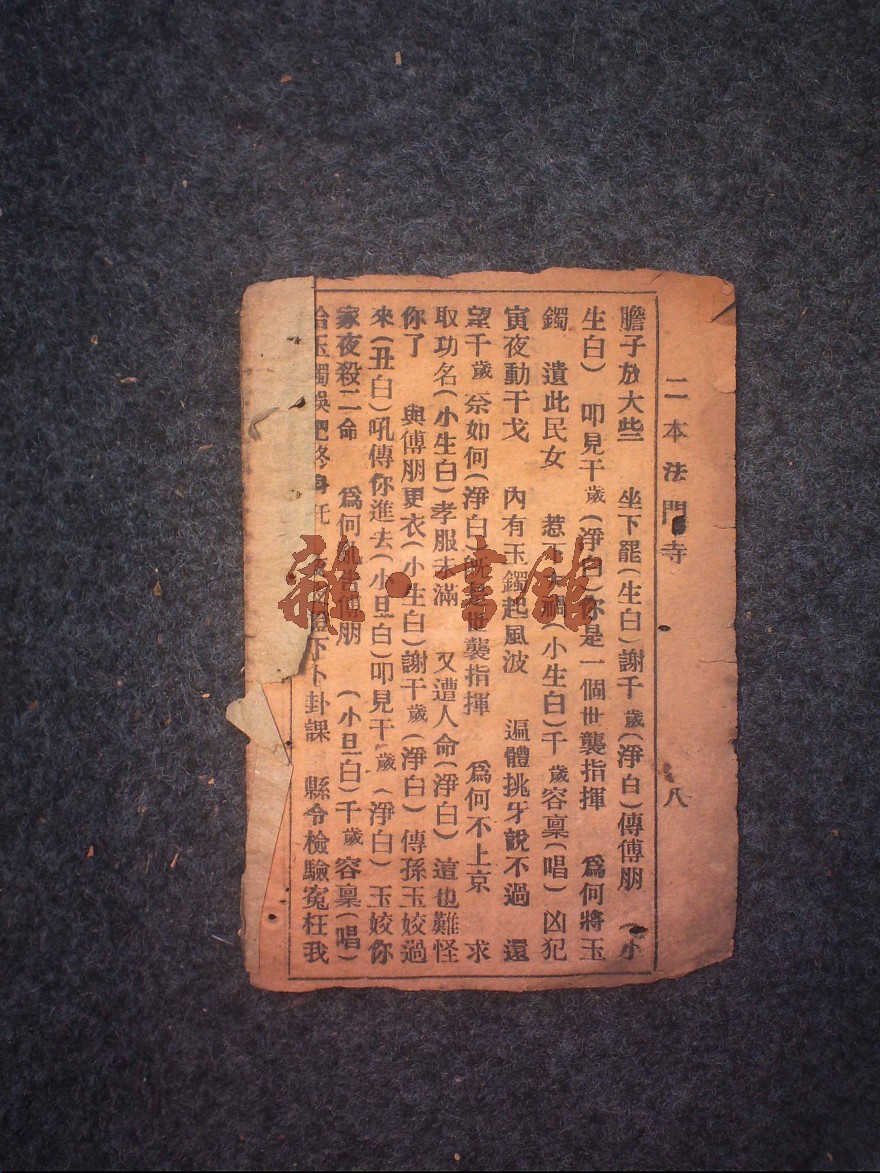 二本法門寺
八
膽子放大些 坐下罷(生白)謝千歲(淨白)傳傅朋 (小
生白) 叩見千歲(淨白)你是一個世襲指揮 爲何將玉
鐲 遺此民女 惹 (小生白)千歲容禀(唱) 凶犯
寅夜動干戈 內有玉鐲起風波 遍體挑牙說不過 還
望千歲奈如何(淨白)既是世襲指揮 爲何不上京 求
取功名(小生白)孝服未滿 又遭人命(淨白) 這也難怪
你了 與傅朋更衣(小生白)謝千歲(淨白) 傳孫玉姣過
來(丑白)吼傳你進去(小旦白)叩見千歲(淨白) 玉姣你
家夜殺二命 爲何 傅朋 (小旦白)千歲容禀(唱)
玉鐲 終身 下卜卦課 縣令檢驗冤枉我
雜·書館